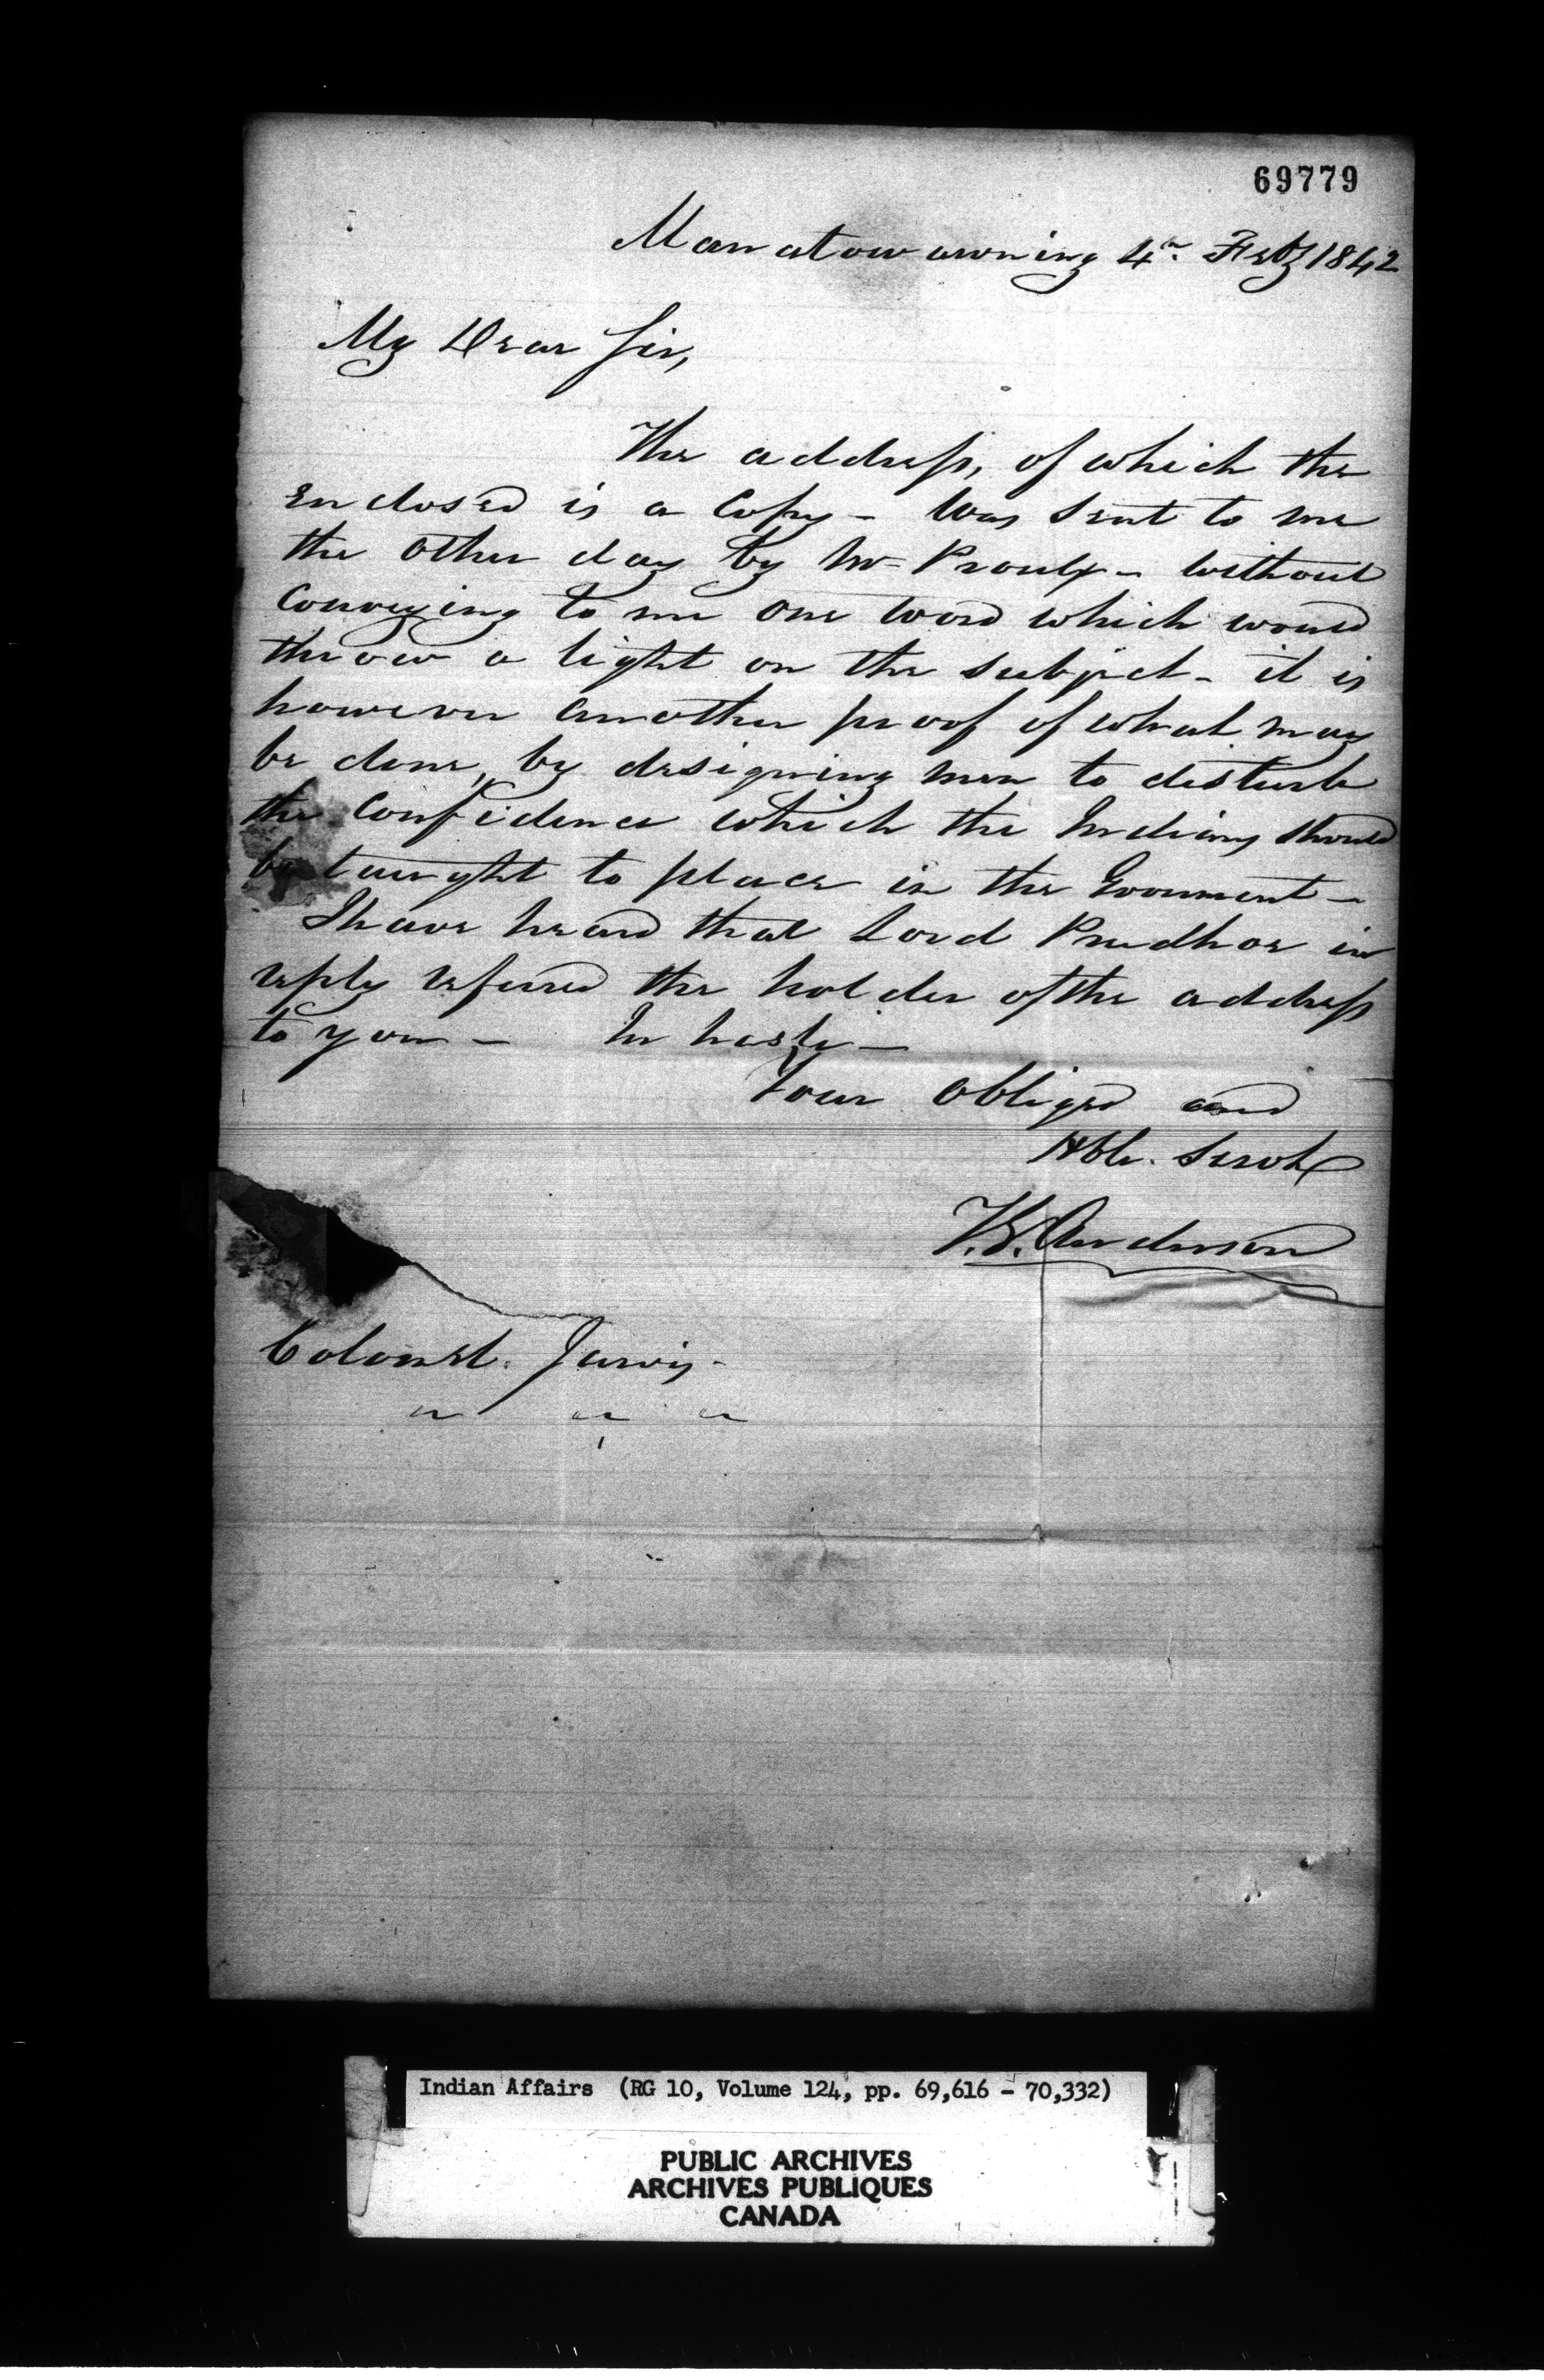 69779
Manatowawning 4th Feby 1842
My Dear Sir,
The address, of which the
enclosed is a Copy - was sent to me
the other day by Mr Proulx - without
Conveying to me one word which would
throw a light on the subject - it is
however another proof of what may
be done, by designing men to disturb
the Confidence which the Indians should
be taught to place in the Goverment -
I have heard that Lord Prudhoe in
reply refered the holder of the address
to you - In haste -
Your obliged and
Hble. Servt
T.G. Anderson
Colonel. Jarvis -
" " "
Indian Affairs (RG 10, Volume 124, pp. 69,616 - 70,332)
PUBLIC ARCHIVES
ARCHIVES PUBLIQUES
CANADA